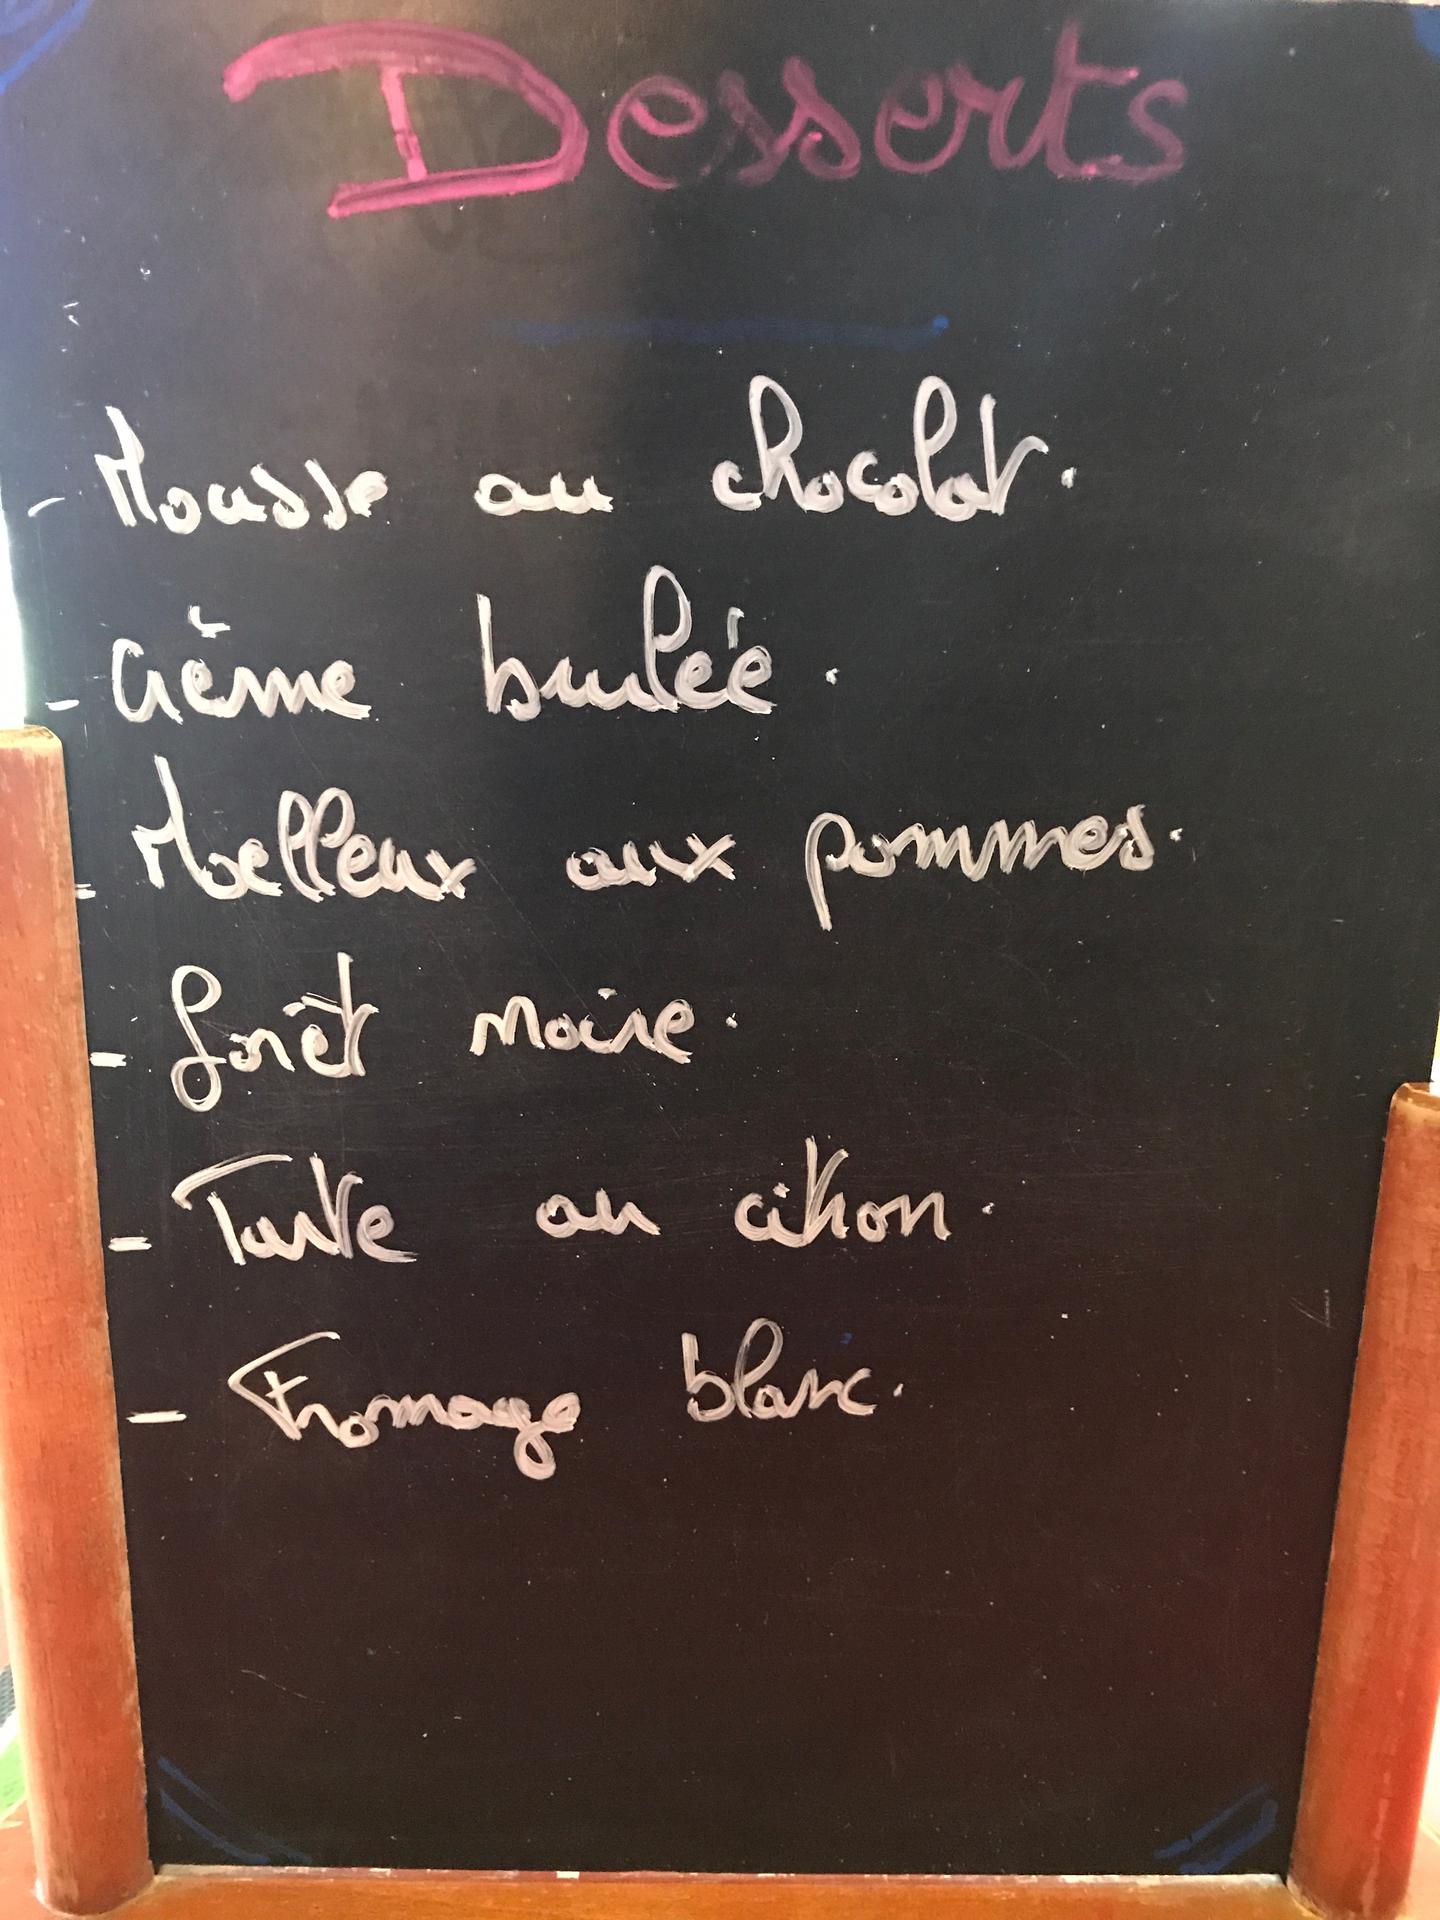 Desserts
- Mousse au chocolat.
- Crème brulée.
- Moelleux aux pommes.
- forêt noire.
- Tarte au citron.
- Fromage blanc.